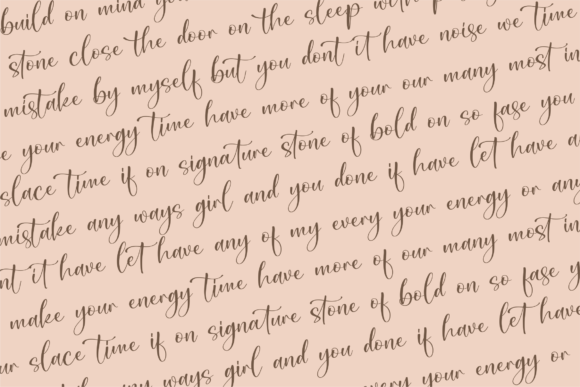 build on mind you
stone close the door on the sleep with
mistake by myself but you dont it have noise we time
your energy time have more of your our many most in
slace time if on signature stone of bold on so fase you
mistake any ways girl and you done if have let have a
nt it have let have any of my every your energy or any
make your energy time have more of our many most in
ur slace time if on signature stone of bold on so fase y
any ways girl and you done if have let have
every your energy or